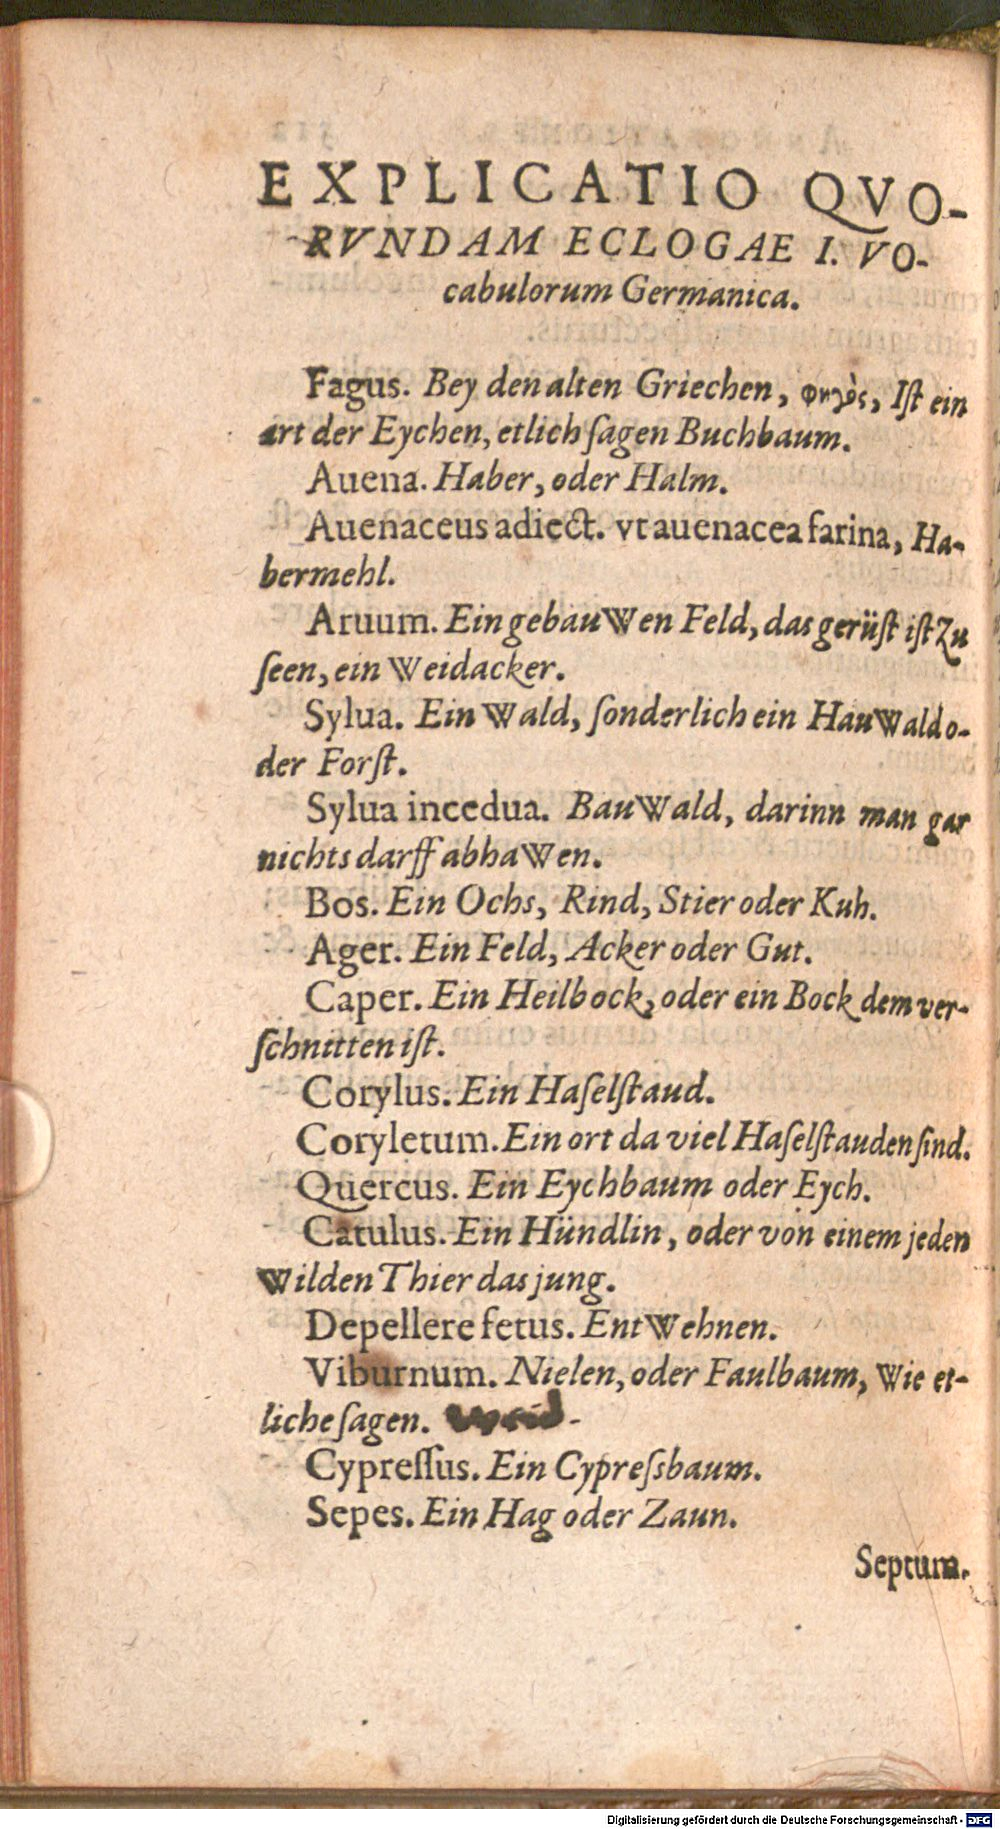 EXPLICATIO QVO-
RVNDAM ECLOGAE I. VO-
cabulorum Germanica.
Fagus. Bey den alten Griechen, φηγὸς, Iſt ein
art der Eychen, etlich ſagen Buchbaum.
Auena. Haber, oder Halm.
Auenaceus adiect. vt auenacea farina, Ha-
bermehl.
Aruum. Ein gebauWen Feld, das gerüſt iſt Zu
ſeen, ein Weidacker.
Sylua. Ein Wald, ſonderlich ein HauWald o-
der Forſt.
Sylua incedua. BauWald, darinn man gar
nichts darff abhaWen.
Bos. Ein Ochs, Rind, Stier oder Kuh.
Ager. Ein Feld, Acker oder Gut.
Caper. Ein Heilbock, oder ein Bock dem ver-
ſchnitten iſt.
Corylus. Ein Haſelſtaud.
Coryletum. Ein ort da viel Haſelſtauden ſind.
Quercus. Ein Eychbaum oder Eych.
Catulus. Ein Hündlin, oder von einem jeden
Wilden Thier das jung.
Depellere fetus. EntWehnen.
Viburnum. Nielen, oder Faulbaum, Wie et-
liche ſagen.
Cypreſſus. Ein Cypreſsbaum.
Sepes. Ein Hag oder Zaun.
Septum.
Digitalisierung gefördert durch die Deutsche Forschungsgemeinschaft - DFG